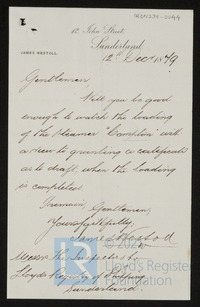 12, John Street,
Sunderland,
12th Decr 1879
JAMES WESTOLL
Gentlemen
Will you be good
enough to watch the loading
of the Steamer "Carrhlin" with
a view to granting a certificate
as to draft, when the loading
is completed
I remain, Gentlemen,
Yours faithfully,
James Westoll
Messrs the Inspectors to
Lloyds Registry of Shipping
Sunderland.
© 2020
Lloyd's Register
Foundation